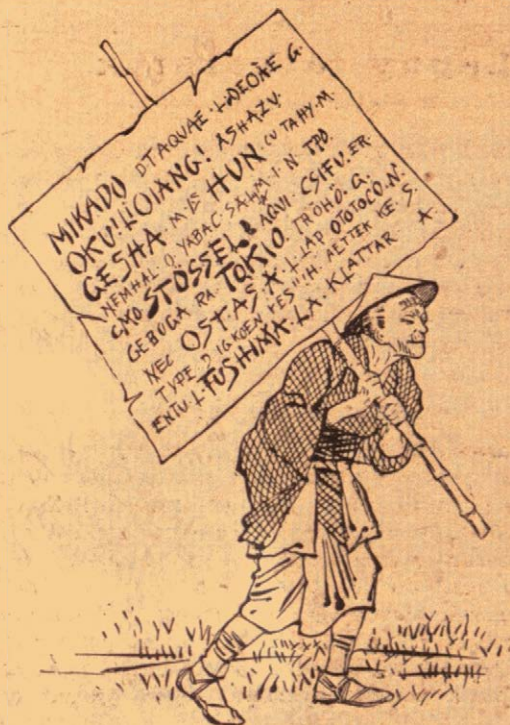 MIKADO DTAQUAE·I·DEOAE G·
OKU! LIOIANG! ASHAZU·
GESHA·M· HUN·CU TAHY·M·
NEMHAL O·YABAC·SALM·I·N TPD·
STOSSEL· & AQUI·CSIFU·ER·
GEBUGA RA·TOKIO·IROHO·G·
NEC OST·AS·A·I·LAP OTOTOCO·N·
TYPE·D IG·KOEN KES H·AETTEK KE·S·
ENTU·L·FUSHIMA·LA·KLATTAR A·